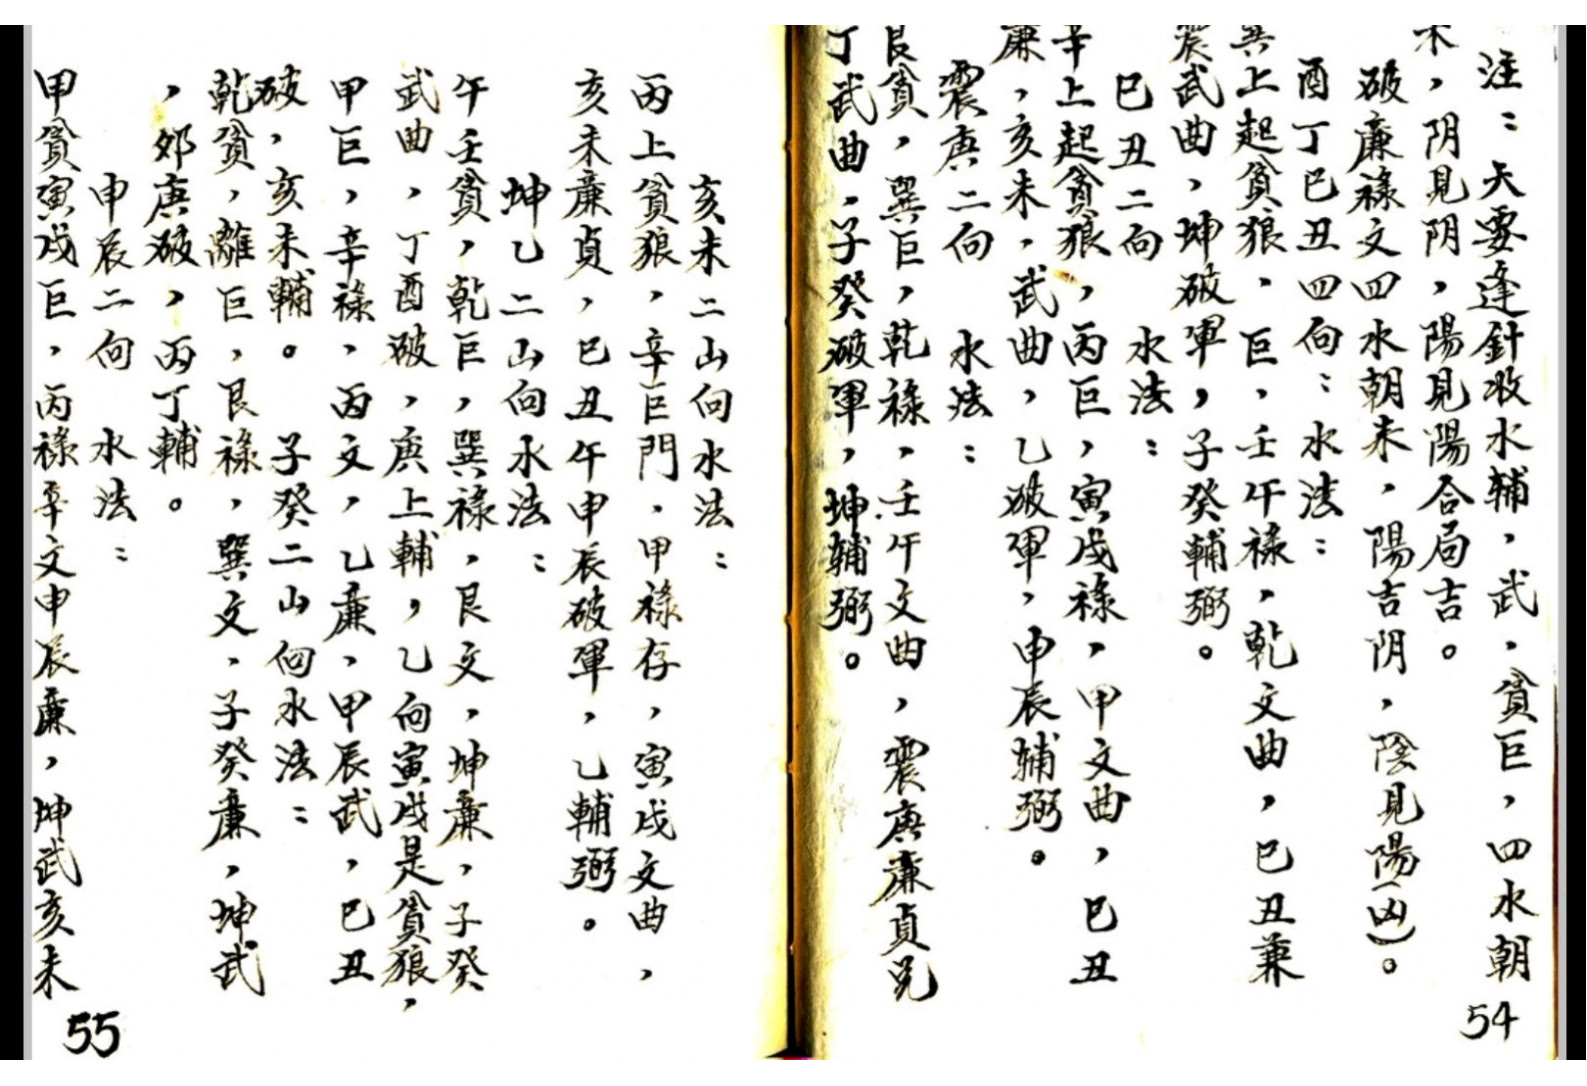 注：天要逢針收水輔，武，貪巨，四水朝
來，阴見阴，陽見陽合局吉。
破廉祿文四水朝来，陽吉阴，陰見陽(凶)。
酉丁巳丑四向：水法：
巽上起貪狼，巨，壬午祿，乾文曲，巳丑兼
震武曲，坤破軍，子癸輔弼。
巳丑二向 水法：
辛上起貪狼，丙巨，寅戌祿，甲文曲，巳丑
廉，亥未，武曲，乙破軍，申辰輔弼。
震庚二向 水法：
艮貪，巽巨，乾祿，壬午文曲，震庚廉貞兌
丁武曲，子癸破軍，坤輔弼。
54
亥未二山向水法：
丙上貪狼，辛巨門，甲祿存，寅戌文曲，
亥未廉貞，巳丑午申辰破軍，乙輔弼。
坤乙二山向水法：
午壬貪，乾巨，巽祿，艮文，坤廉，子癸
武曲，丁酉破，庚上輔，乙向寅戌是貪狼，
甲巨，辛祿，丙文，乙廉，甲辰武，巳丑
破，亥未輔。 子癸二山向水法：
乾貪，離巨，艮祿，巽文，子癸廉，坤武
，郊庚破，丙丁輔。
申辰二向 水法：
甲貪寅戌巨，丙祿辛文申辰廉，坤武亥未
55